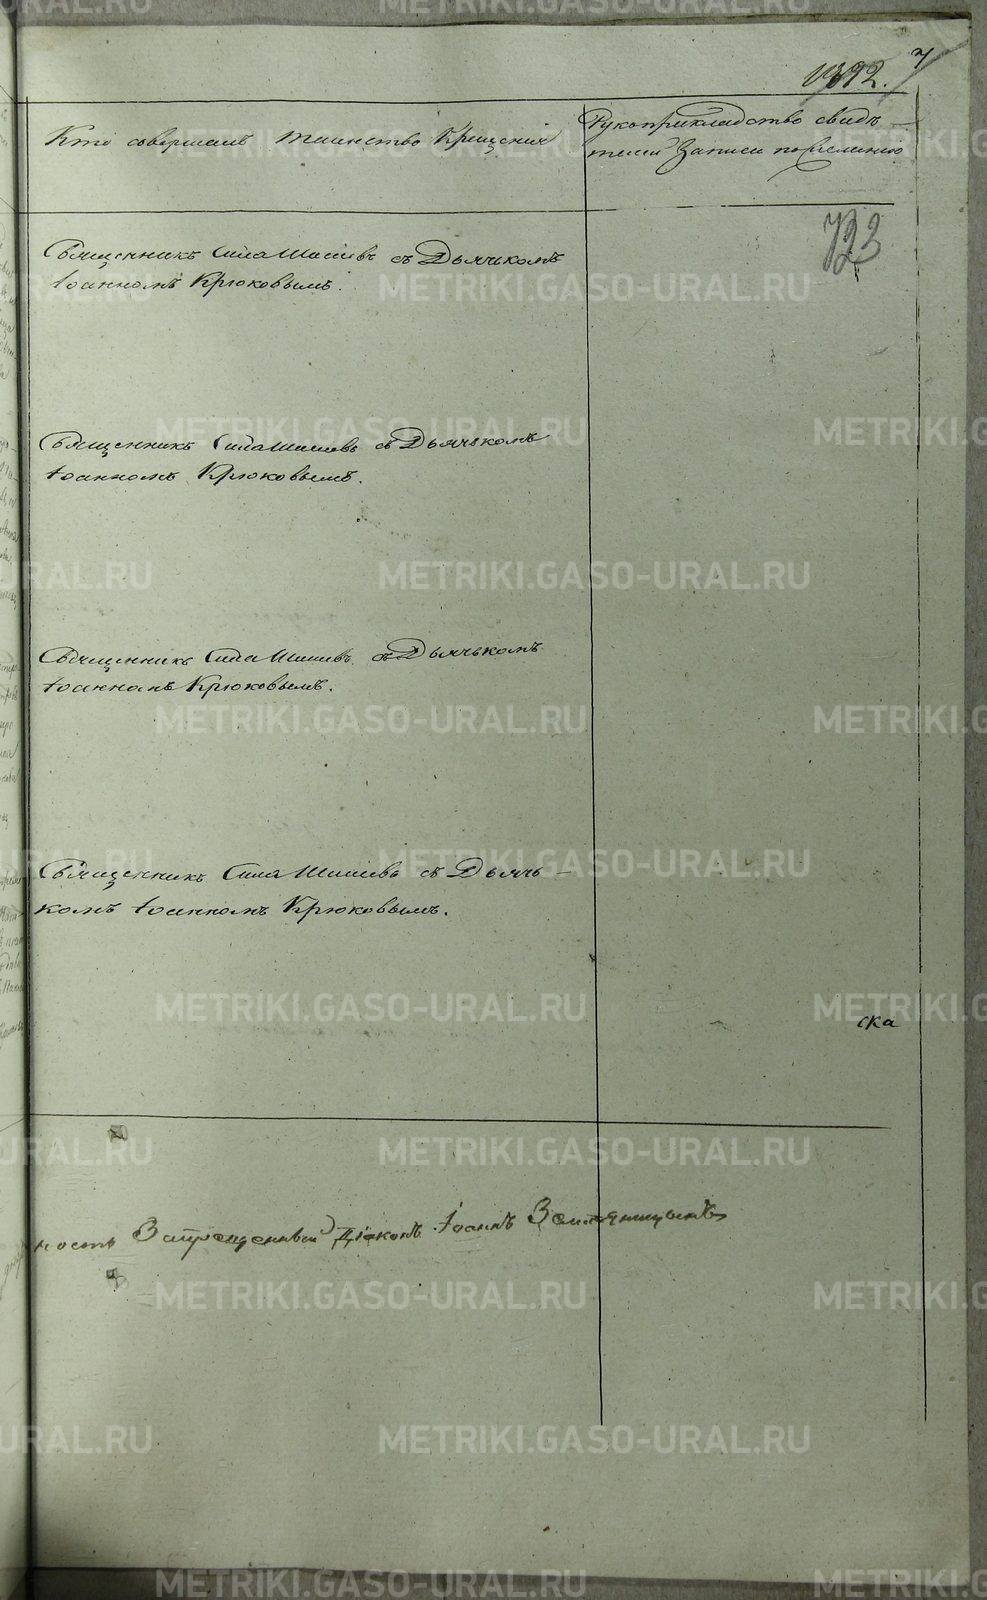 7
1392.
Кто совершалъ таинство Крещенія
Рукоприкладство свидѣ-
телей Записи по желанію
723
Священникъ Сила Шишевъ съ Дьячькомъ
Іоанномъ Крюковымъ.
Священникъ Сила Шишевъ съ Дьячькомъ
Іоанномъ Крюковымъ.
Священникъ Сила Шишевъ съ Дьячькомъ
Іоанномъ Крюковымъ.
Священникъ Сила Шишевъ съ Дьячь-
комъ Іоанномъ Крюковымъ.
ска
ность Запрещенный Діаконъ Іоаннъ
METRIKI.GASO-URAL.RU